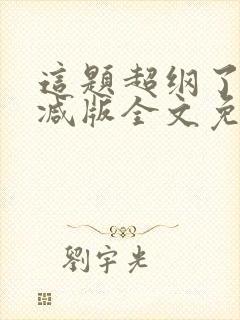 這題超纲了
减版全文免
劉宇光